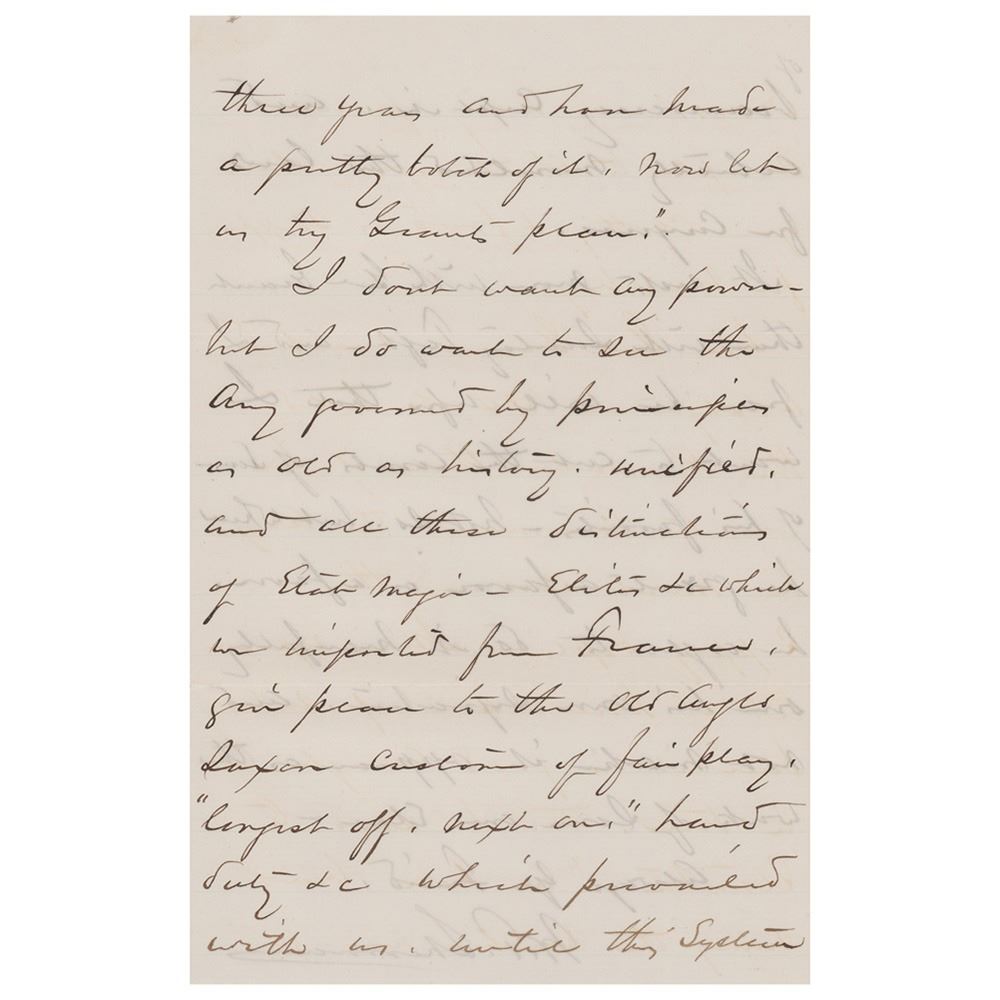 three years and have made
a pretty botch of it. now let
us try Grants plan."
I dont want any power -
but I do want to see the
Army governed by principles
as old as history. unified.
and all these distinctions
of Etat Major - Elites &c which
we imported from France.
give place to the old Anglo
Saxon custom of fair play.
"longest off. next on." hard
duty &c which prevailed
with us. until this System